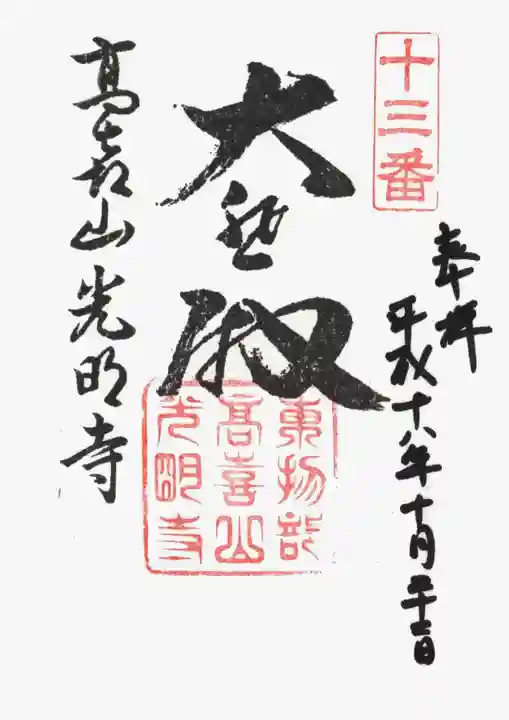 十三番
奉拝
平成十八年十月二十二日
大悲殿
東物部
高喜山
光明寺
高喜山光明寺